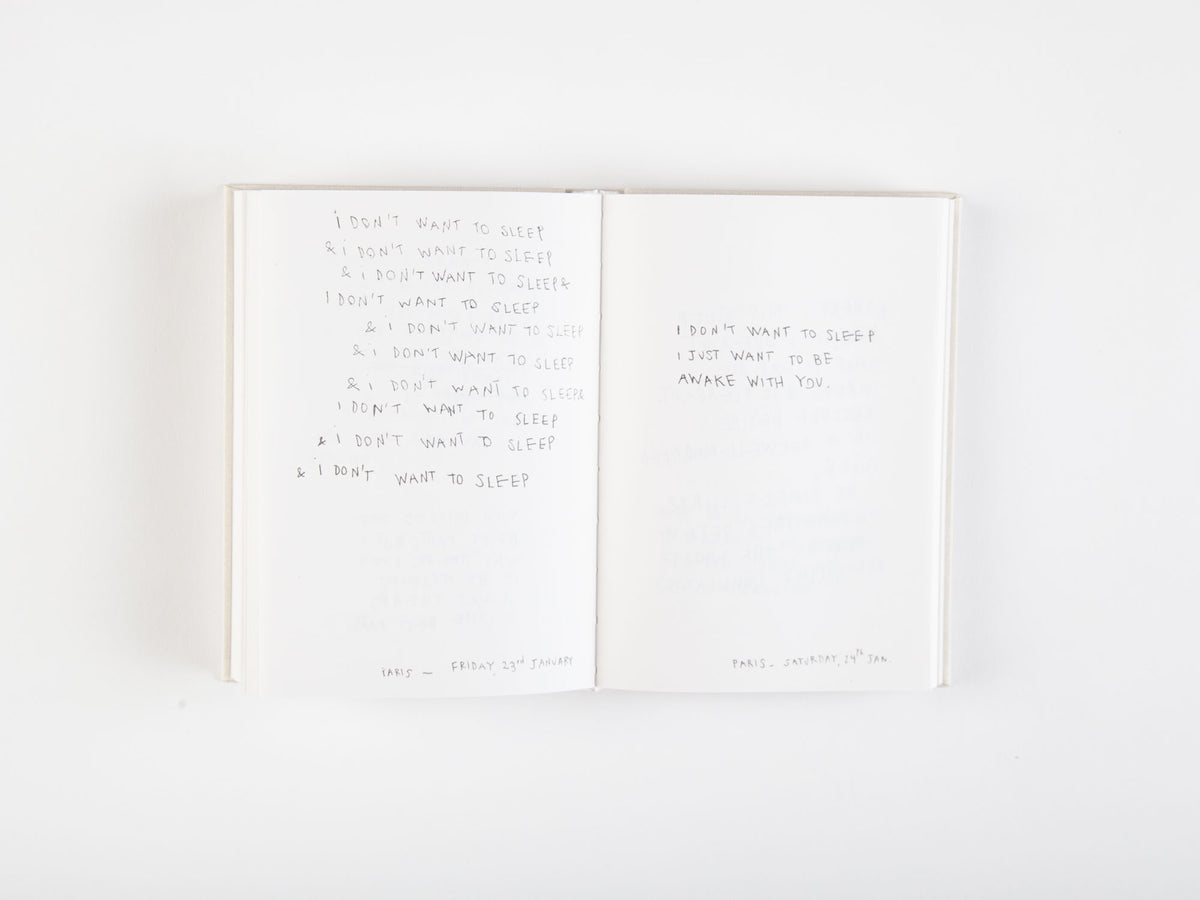 i DON'T WANT TO SLEEP
& i DON'T WANT TO SLEEP
& i DON'T WANT TO SLEEP &
I DON'T WANT TO SLEEP
& i DON'T WANT TO SLEEP
& i DON'T WANT TO SLEEP
& i DON'T WANT TO SLEEP &
i DON'T WANT TO SLEEP
& i DON'T WANT TO SLEEP
& i DON'T WANT TO SLEEP
PARIS — FRIDAY, 23rd JANUARY
I DON'T WANT TO SLEEP
I JUST WANT TO BE
AWAKE WITH YOU.
PARIS - SATURDAY, 24th JAN.